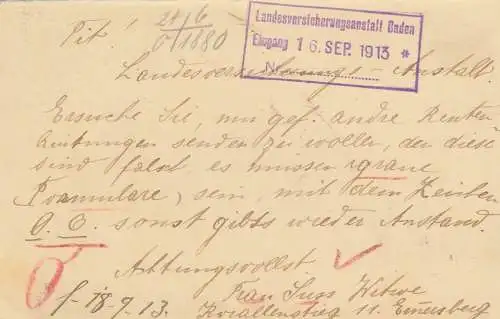 Tit!
24/6
6/1880
Landesversicherungsanstalt Baden
Eingang 16. SEP. 1913 *
N
Landesversicherungs-Anstalt.
Ersuche Sie, mir gef. andre Renten-
quittungen senden zu wollen, den diese
sind falsch es müssen graue
Formulare, sein, mit dem Zeichen
O. O. sonst gibts wieder Anstand.
Achtungsvollst.
18 9 13.
Frau Süss Witwe
Korallenstieg 11. Emersberg